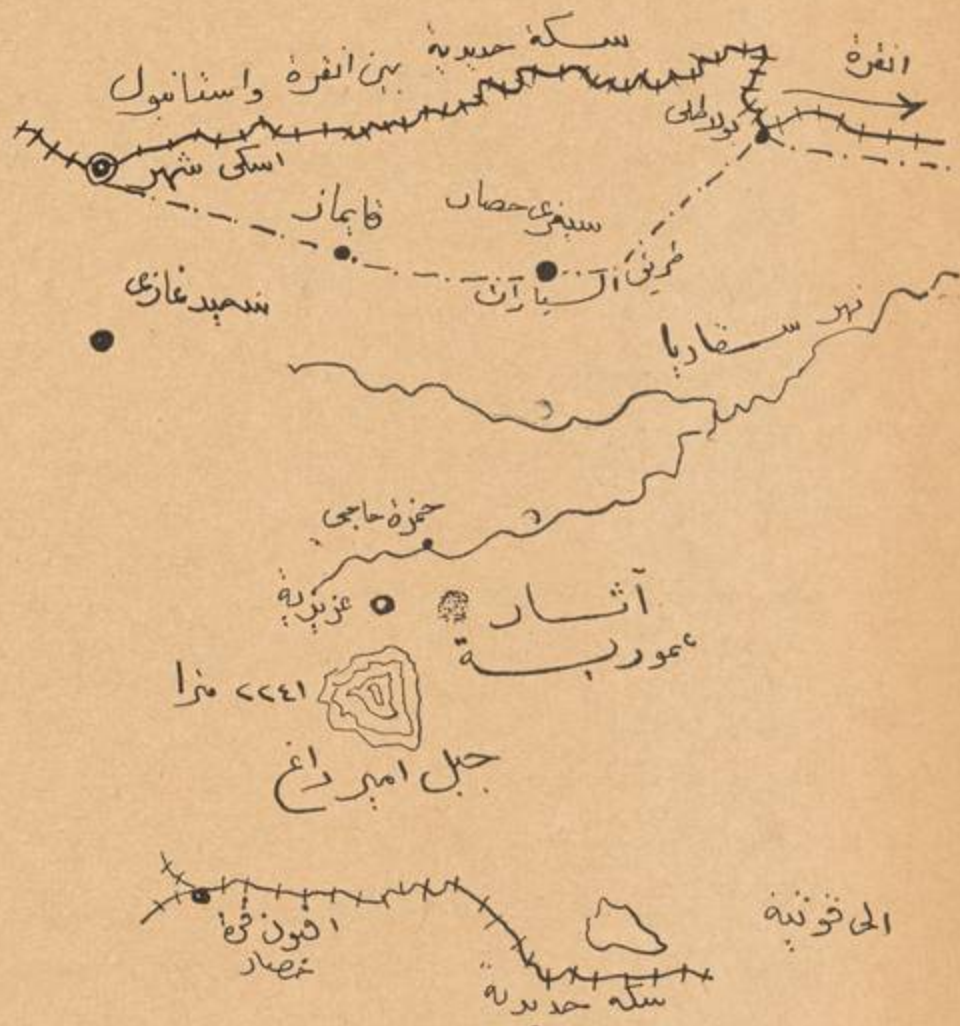 سكة حديدية بين انقرة واستانبول
انقرة
بولاطلى
اسكى شهر
قايماز
سيفرى حصار
طريق السيارات
سيد غازى
نهر سقاريا
حمزة حاجى
عزيزية
آثار
عمورية
٢٢٤١ مترا
جبل امير داغ
افيون قرة
حصار
الى قونية
سكة حديدية